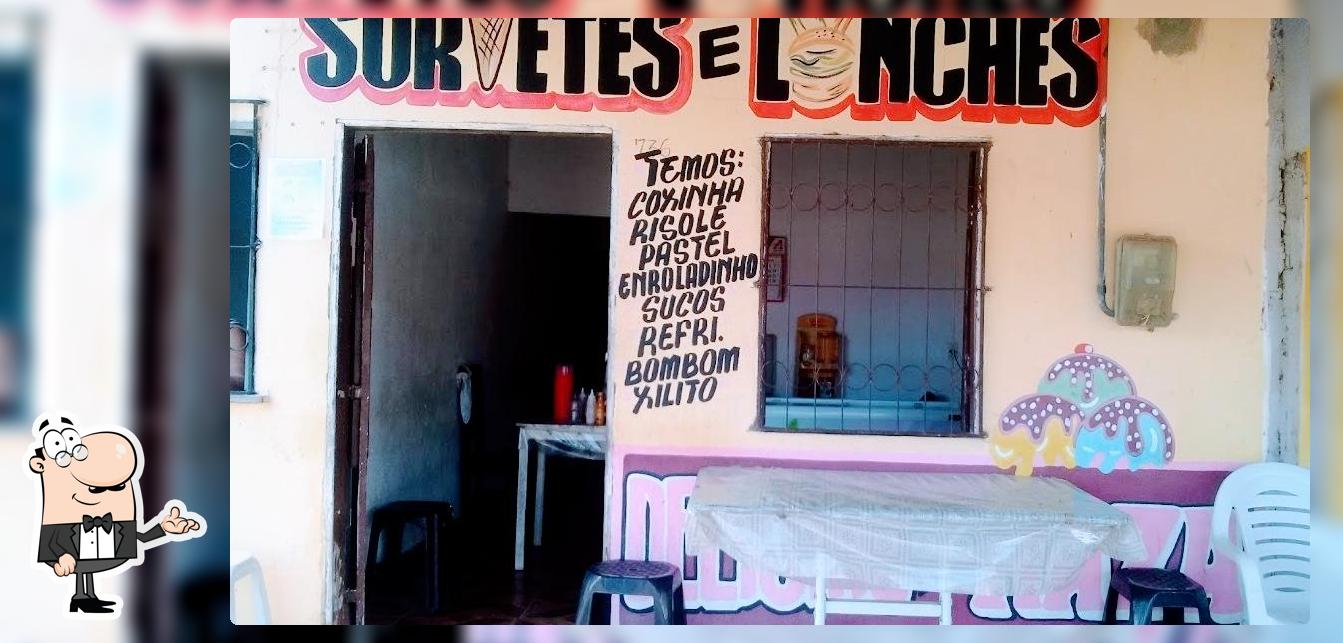 SORVETES E LANCHES
736
TEMOS:
COXINHA
RISOLE
PASTEL
ENROLADINHO
SUCOS
REFRI.
BOMBOM
XILITO